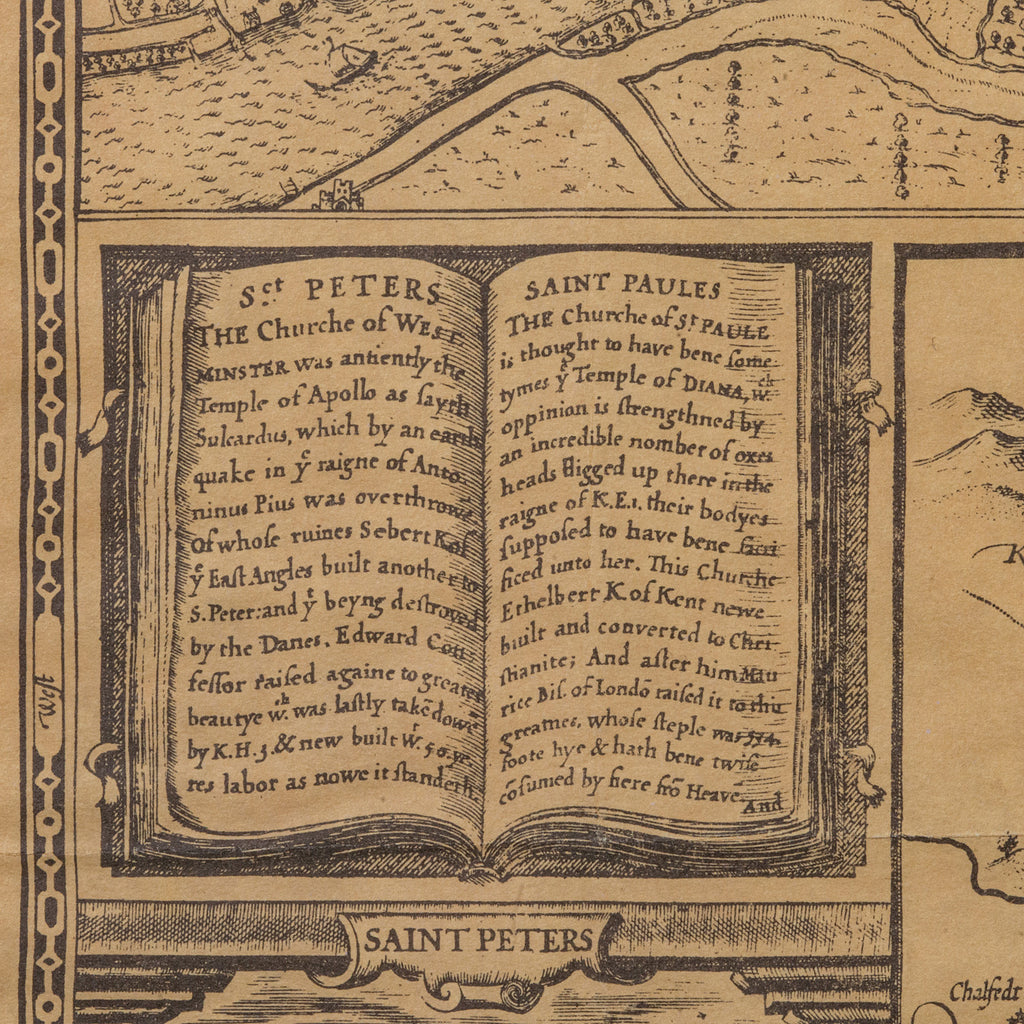 Sct PETERS
THE Churche of WEST
MINSTER was antiently the
Temple of Apollo as sayth
Sulcardus, which by an earth
quake in yͤ raigne of Anto
ninus Pius was overthrowe
Of whose ruines Sebert K. of
yͤ East Angles built another to
S. Peter: and yͭ beyng destroyed
by the Danes. Edward Con
fessor raised againe to greater
beautye wͨʰ was lastly takē dowē
by K. H. 3. & new built wͭ 50. ye
res labor as nowe it standeth.
SAINT PAULES
THE Churche of Sͭ PAULE
is thought to have bene some
tymes yͤ Temple of DIANA, wͨʰ
oppinion is strengthned by
an incredible nomber of oxes
heads digged up there in the
raigne of K. E. 1. their bodyes
supposed to have bene sacri
ficed unto her. This Churche
Ethelbert K. of Kent newe
built and converted to Chri
stianite; And after him Mau
rice Bis. of Londō raised it to this
greatnes, whose steple was 534.
foote hye & hath bene twise
cōsumed by fiere frō Heavē.
And
SAINT PETERS
West
K
Chalfedt